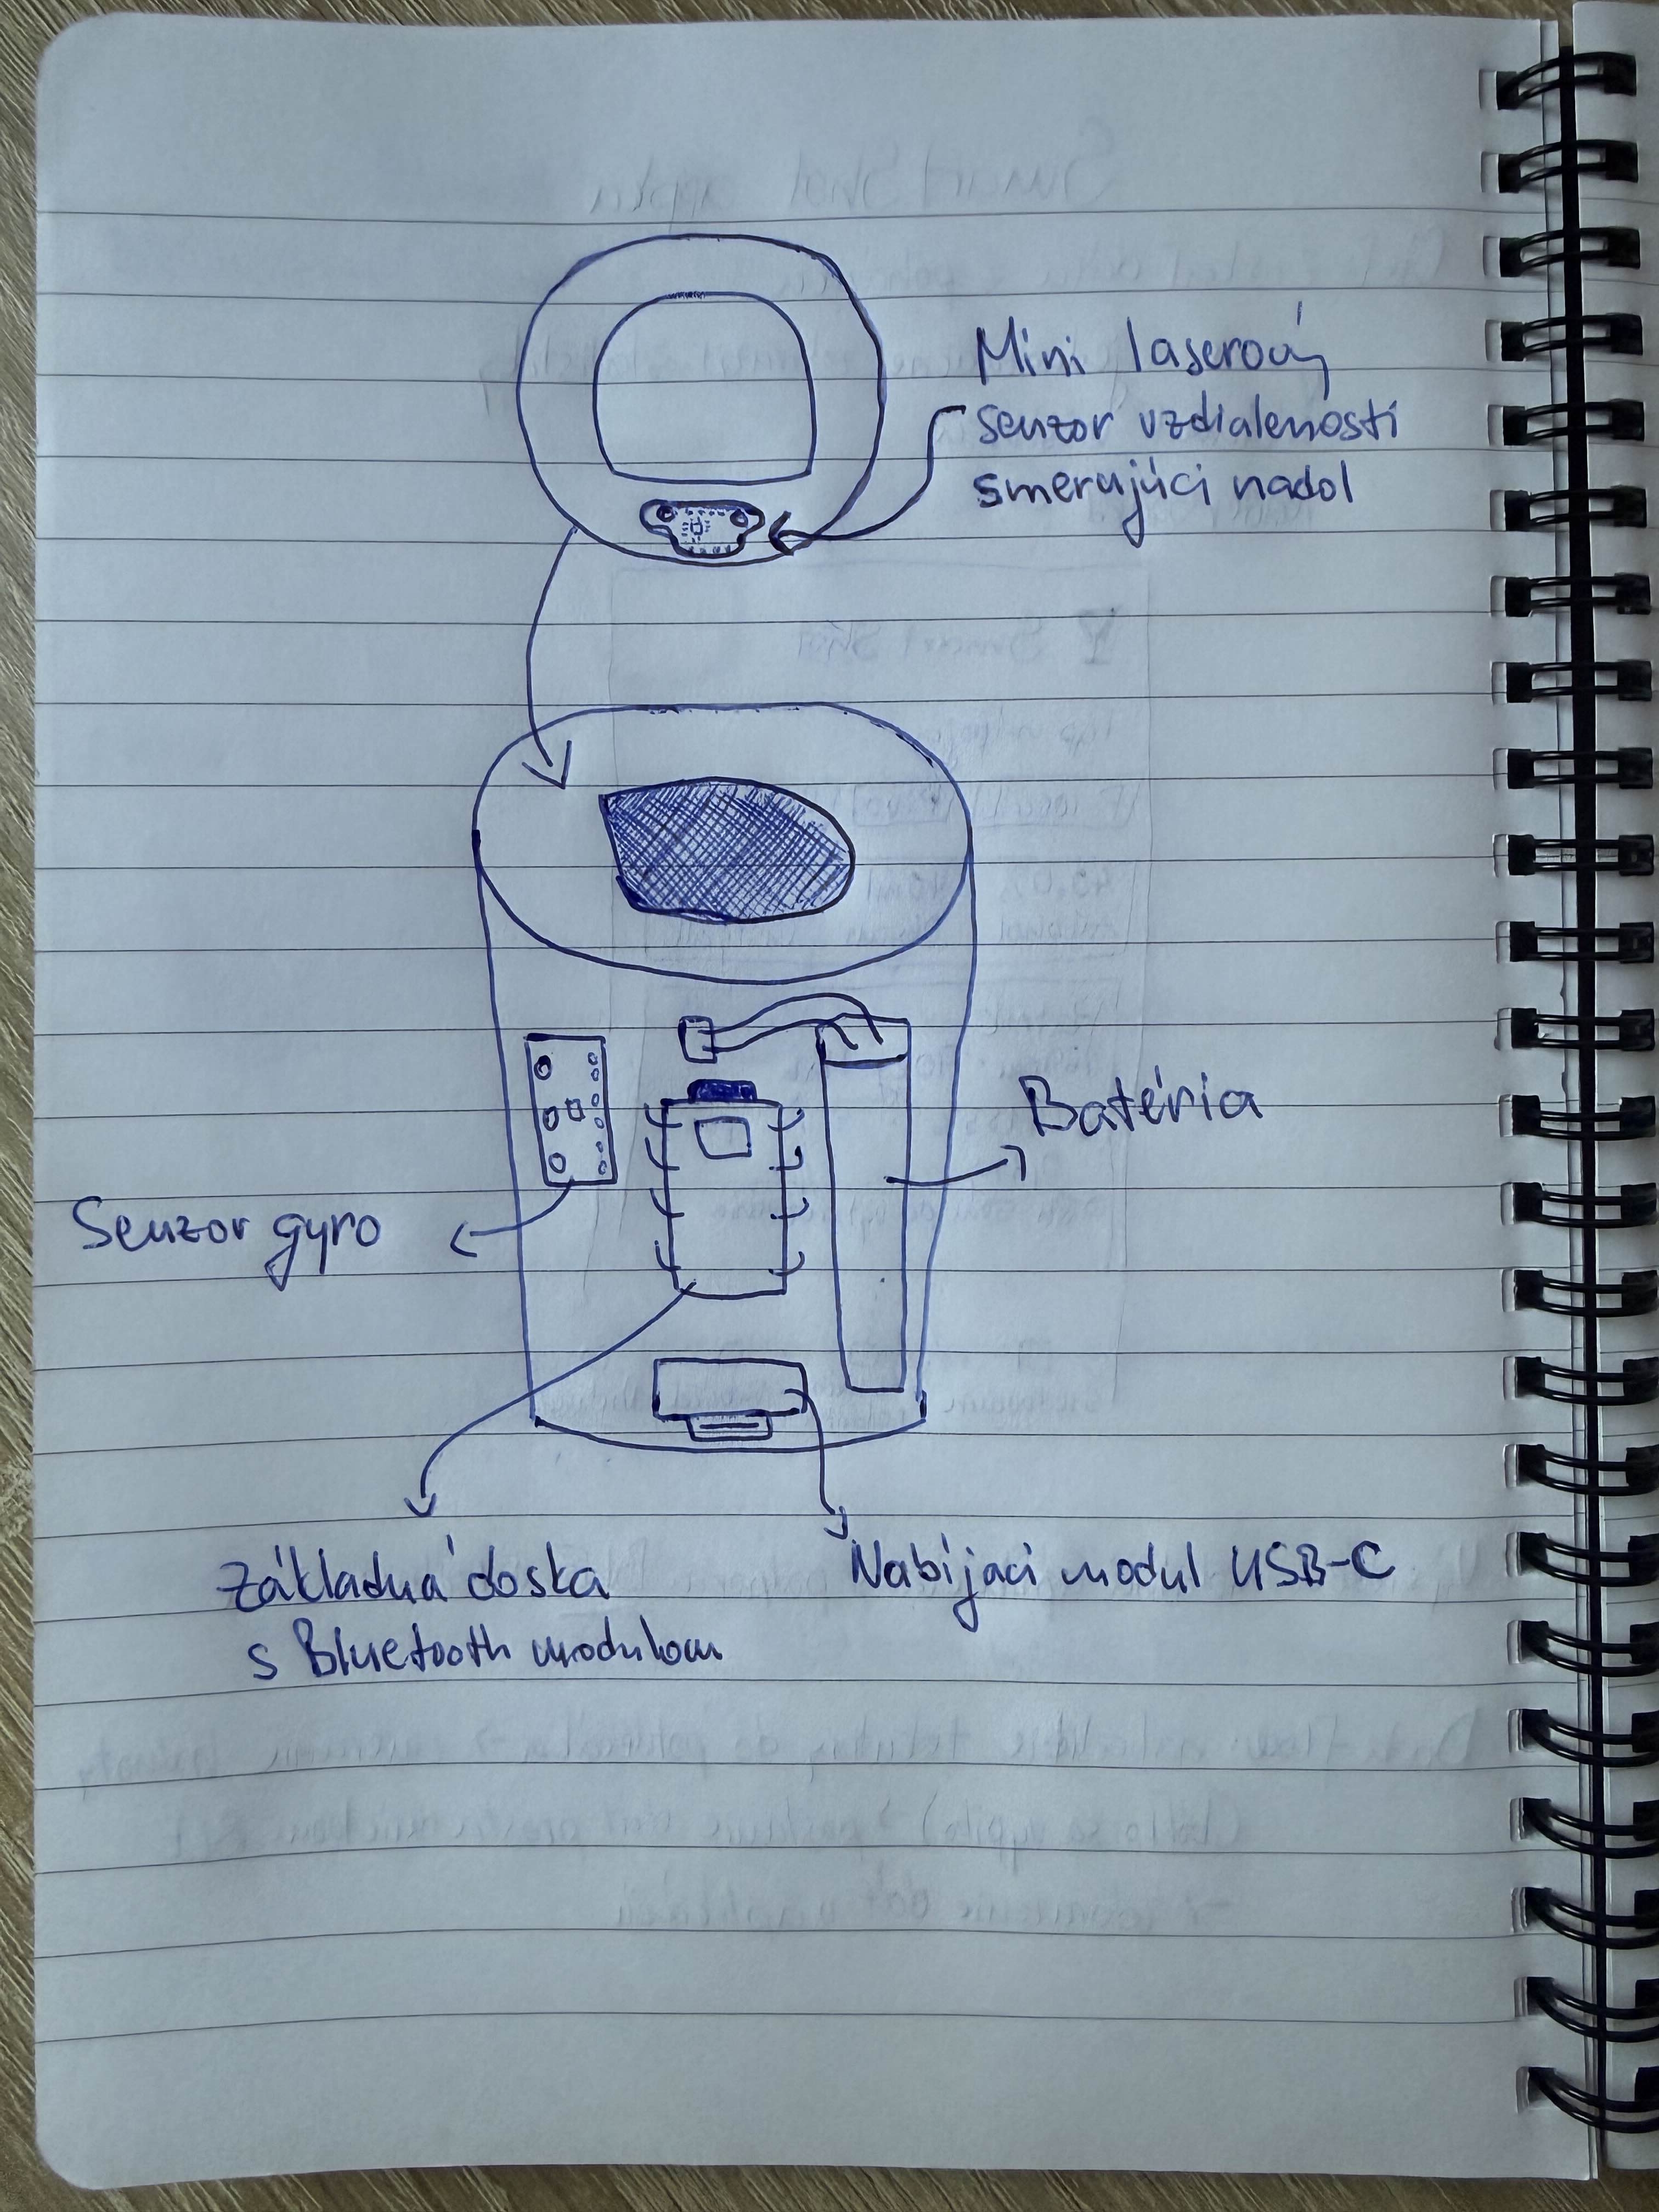 Mini laserový
senzor vzdialenosti
smerujúci nadol
Batéria
Senzor gyro
Základná doska
s Bluetooth modulom
Nabíjací modul USB-C